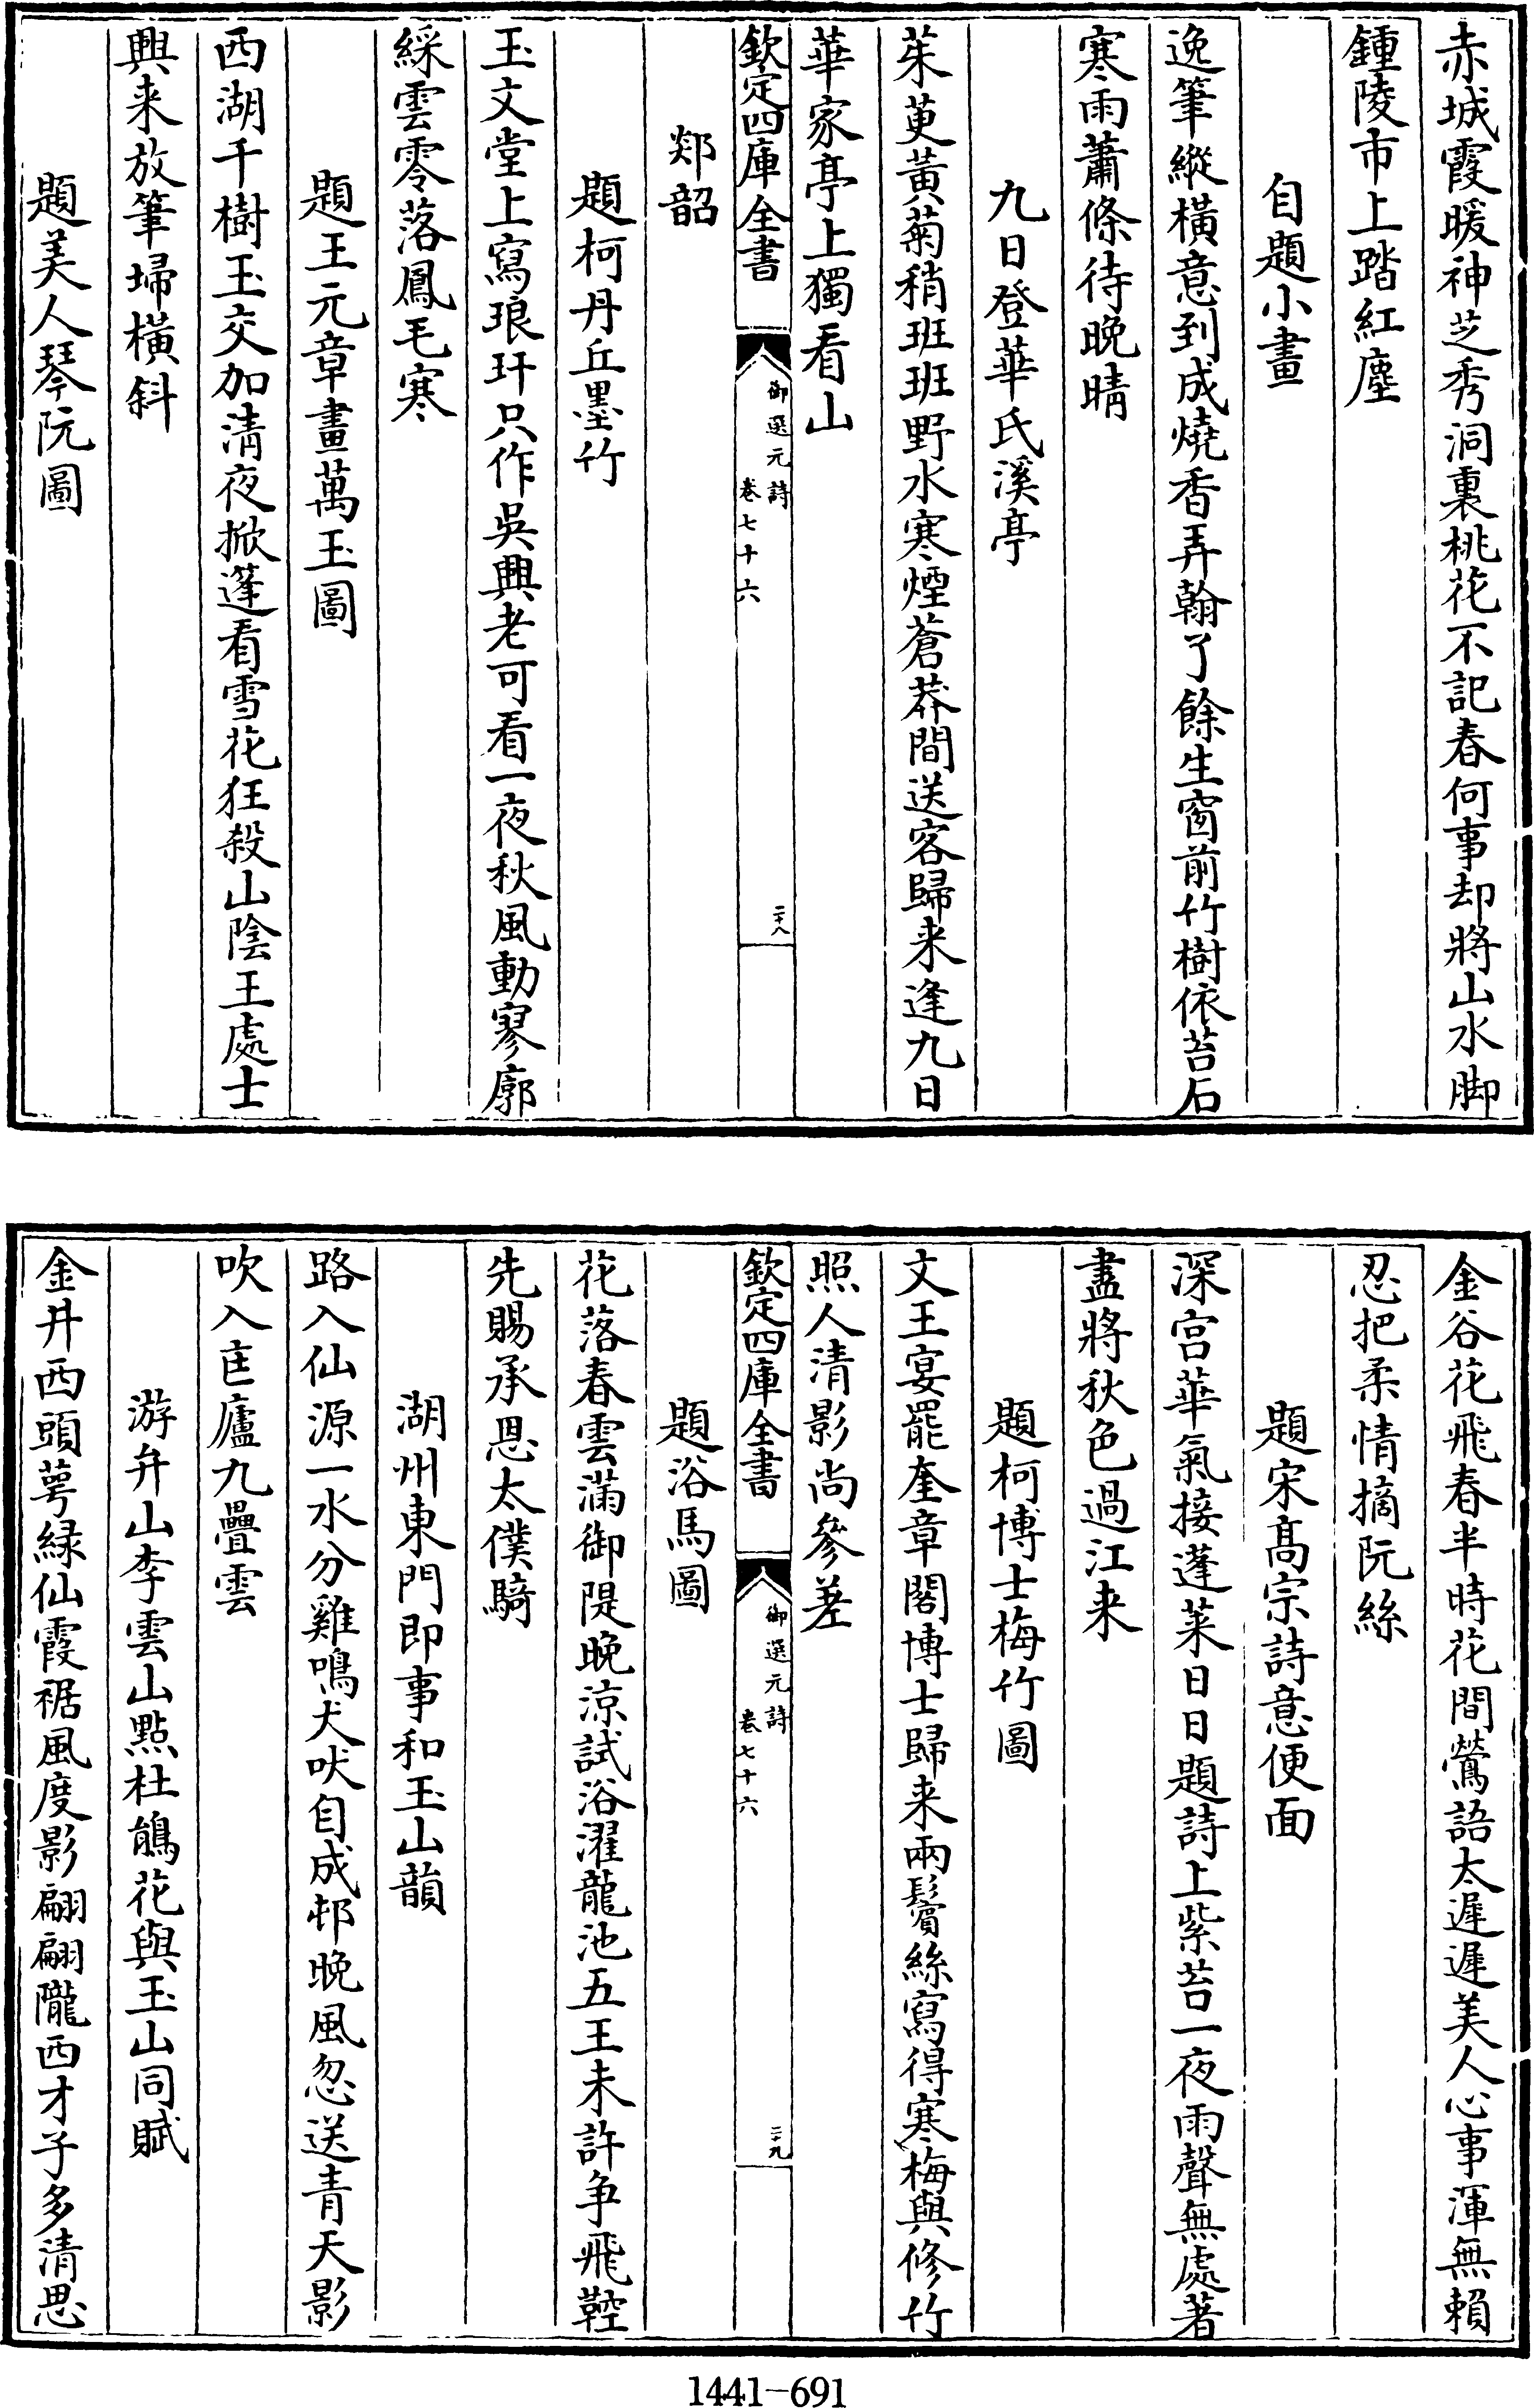 赤城霞暖神芝秀洞裏桃花不記春何事却將山水脚
鍾陵市上踏紅塵
自題小畫
逸筆縱橫意到成燒香弄翰了餘生窗前竹樹依苔石
寒雨蕭條待晚晴
九日登華氏溪亭
茱萸黃菊稍班班野水寒煙蒼莽間送客歸来逢九日
華家亭上獨看山
欽定四庫全書
御選元詩
卷七十六
二十八
郯韶
題柯丹丘墨竹
玉文堂上寫琅玕只作吳興老可看一夜秋風動寥廓
綵雲零落鳳毛寒
題王元章畫萬玉圖
西湖千樹玉交加清夜掀篷看雪花狂殺山陰王處士
興来放筆埽橫斜
題美人琴阮圖
金谷花飛春半時花間鶯語太遲遲美人心事渾無賴
忍把柔情摘阮絲
題宋高宗詩意便面
深宫華氣接蓬莱日日題詩上紫苔一夜雨聲無處著
盡將秋色過江来
題柯博士梅竹圖
文王宴罷奎章閣博士歸来兩鬢絲寫得寒梅與修竹
照人清影尚參差
欽定四庫全書
御選元詩
卷七十六
二十九
題浴馬圖
花落春雲滿御隄晚涼試浴濯龍池五王未許争飛鞚
先賜承恩太僕騎
湖州東門即事和玉山韻
路入仙源一水分雞鳴犬吠自成邨晚風忽送青天影
吹入匡廬九疊雲
游弁山李雲山點杜鵑花與玉山同賦
金井西頭萼緑仙霞裾風度影翩翩隴西才子多清思
1441-691